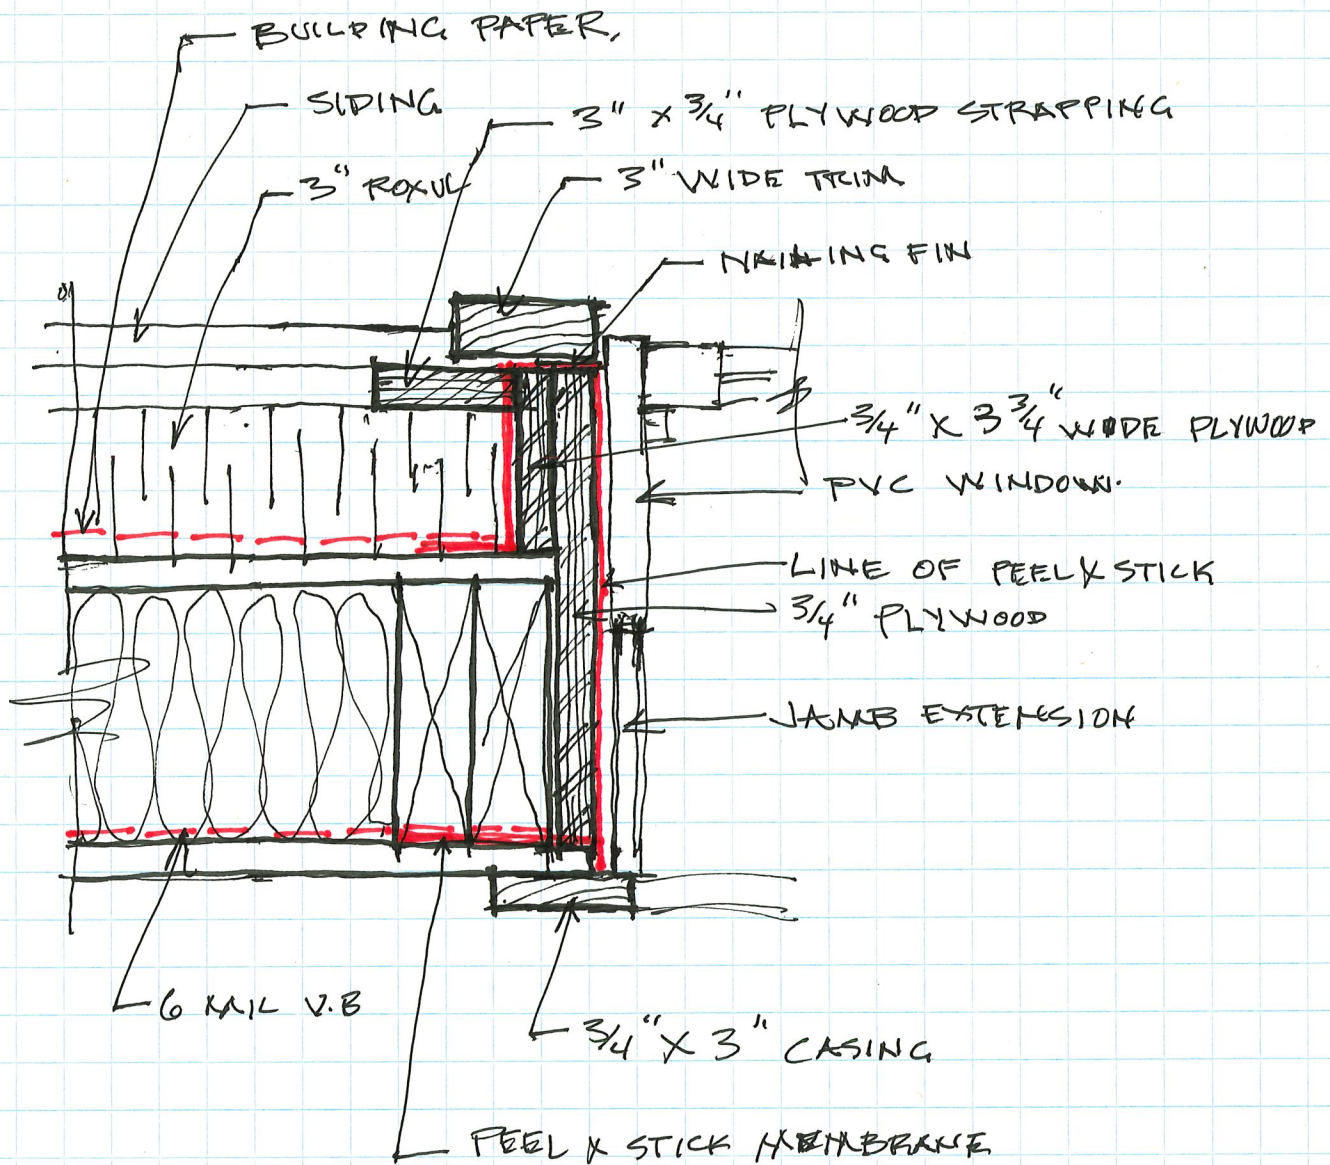 BUILDING PAPER,
SIDING
3" X 3/4" PLYWOOD STRAPPING
3" ROXUL
3" WIDE TRIM
NAILING FIN
3/4" X 3 3/4" WIDE PLYWOOD
PVC WINDOW.
LINE OF PEEL & STICK
3/4" PLYWOOD
JAMB EXTENSION
6 MIL V.B
3/4" X 3" CASING
PEEL & STICK MEMBRANE